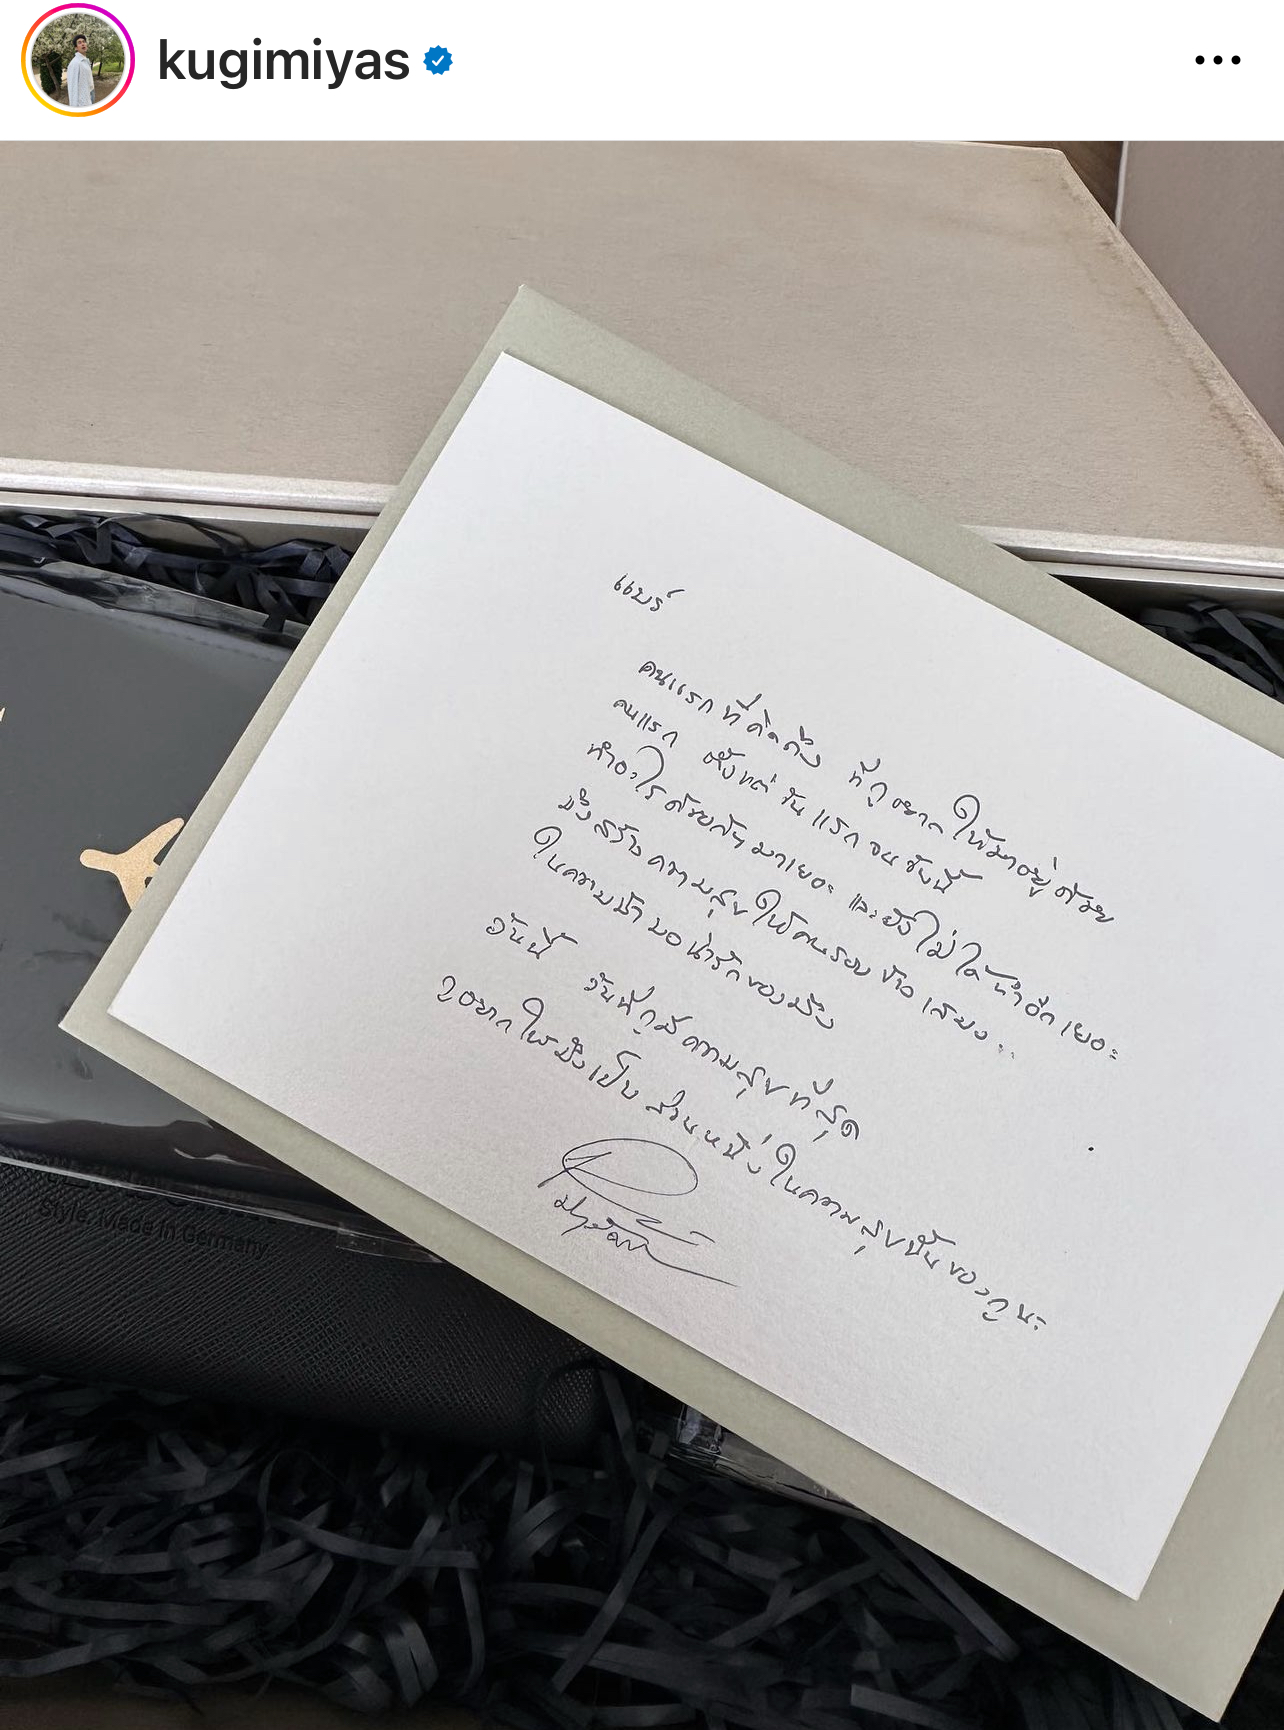 kugimiyas
แบร์
คนแรกที่คิดถึง ที่กูอยากให้มาอยู่ด้วย
คนแรก ตั้งแต่วันแรกจนวันนี้
ทำอะไรด้วยกันมาเยอะ และยังไม่ได้ทำอีกเยอะ
มึงสร้างความสุขให้คนรอบข้างเสมอ..
ในความน่ารักของมึง
วันนี้ วันที่กูมีความสุขที่สุด
อยากให้มึงเป็นส่วนหนึ่งในความสุขนั้นของกูนะ
Style. Made in Germany